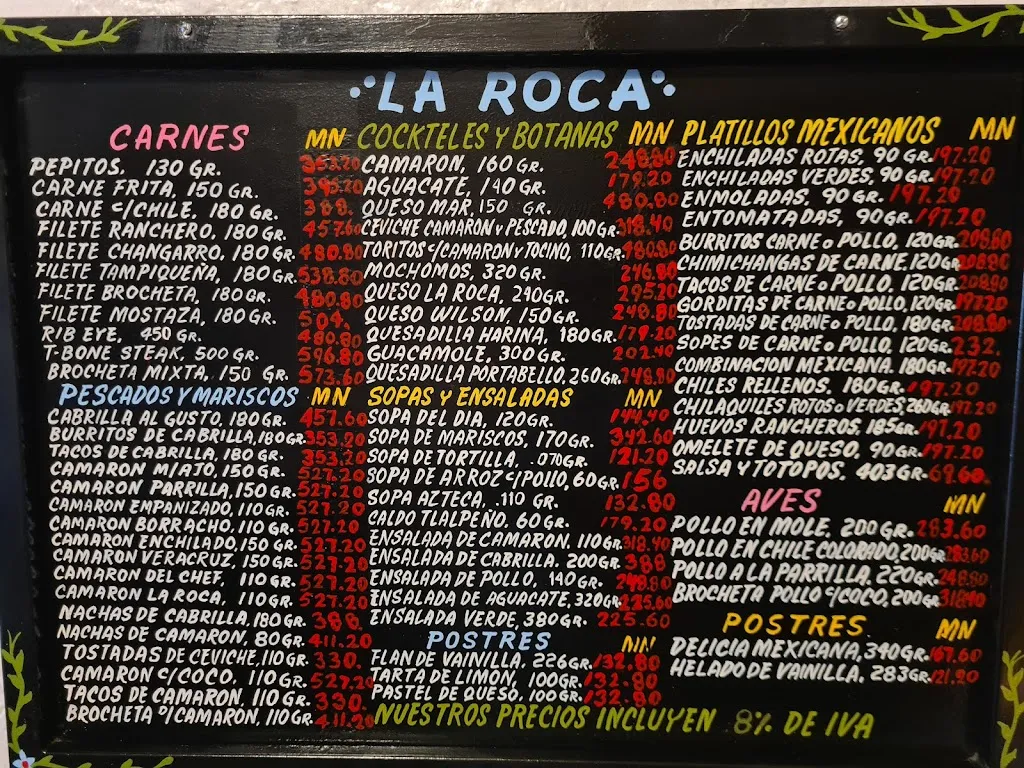 LA ROCA
CARNES MN
PEPITOS. 130 GR.
CARNE FRITA, 150 GR.
CARNE C/CHILE, 180 GR. 388.
FILETE RANCHERO, 180 GR. 457.60
FILETE CHANGARRO, 180 GR. 480.80
FILETE TAMPIQUEÑA, 180 GR. 538.80
FILETE BROCHETA, 180 GR. 480.80
FILETE MOSTAZA, 180 GR. 504.
RIB EYE, 450 GR. 480.80
T-BONE STEAK, 500 GR. 596.80
BROCHETA MIXTA, 150 GR. 573.60
PESCADOS Y MARISCOS MN
CABRILLA AL GUSTO, 180 GR. 457.60
BURRITOS DE CABRILLA, 180 GR. 353.20
TACOS DE CABRILLA, 180 GR. 353.20
CAMARON M/AJO, 150 GR. 527.20
CAMARON PARRILLA, 150 GR. 527.20
CAMARON EMPANIZADO, 110 GR. 527.20
CAMARON BORRACHO, 110 GR. 527.20
CAMARON ENCHILADO, 150 GR. 527.20
CAMARON VERACRUZ, 150 GR. 527.20
CAMARON DEL CHEF, 110 GR. 527.20
CAMARON LA ROCA, 110 GR. 527.20
NACHAS DE CABRILLA, 180 GR. 388.
NACHAS DE CAMARON, 80 GR. 411.20
TOSTADAS DE CEVICHE, 110 GR. 330.
CAMARON C/COCO, 110 GR. 527.20
TACOS DE CAMARON, 110 GR. 330.
BROCHETA C/CAMARON, 110 GR. 411.20
COCKTELES Y BOTANAS MN
CAMARON, 160 GR. 248.80
AGUACATE, 140 GR. 179.20
QUESO MAR, 150 GR. 480.80
CEVICHE CAMARON Y PESCADO, 100 GR. 318.40
TORITOS C/CAMARON Y TOCINO, 110 GR. 480.80
MOCHOMOS, 320 GR. 246.80
QUESO LA ROCA, 240 GR. 295.20
QUESO WILSON, 150 GR. 248.80
QUESADILLA HARINA, 180 GR. 179.20
GUACAMOLE, 300 GR. 202.40
QUESADILLA PORTABELLO, 260 GR. 248.80
SOPAS Y ENSALADAS MN
SOPA DEL DIA, 120 GR. 144.40
SOPA DE MARISCOS, 170 GR. 342.60
SOPA DE TORTILLA, .070 GR. 121.20
SOPA DE ARROZ C/POLLO, 60 GR. 156
SOPA AZTECA, .110 GR. 132.80
CALDO TLALPEÑO. 60 GR. 179.20
ENSALADA DE CAMARON. 110 GR. 318.40
ENSALADA DE CABRILLA. 200 GR. 388
ENSALADA DE POLLO, 140 GR. 248.80
ENSALADA DE AGUACATE, 320 GR. 225.60
ENSALADA VERDE, 380 GR. 225.60
POSTRES MN
FLAN DE VAINILLA, 226 GR. 132.80
TARTA DE LIMON, 100 GR. 132.80
PASTEL DE QUESO, 100 GR. 132.80
PLATILLOS MEXICANOS MN
ENCHILADAS ROTAS, 90 GR. 197.20
ENCHILADAS VERDES, 90 GR. 197.20
ENMOLADAS, 90 GR. 197.20
ENTOMATADAS, 90 GR. 197.20
BURRITOS CARNE o POLLO, 120 GR. 208.80
CHIMICHANGAS DE CARNE, 120 GR. 208.80
TACOS DE CARNE o POLLO. 120 GR. 208.80
GORDITAS DE CARNE o POLLO, 120 GR. 197.20
TOSTADAS DE CARNE o POLLO, 180 GR. 208.80
SOPES DE CARNE o POLLO, 120 GR. 232.
COMBINACION MEXICANA. 180 GR. 197.20
CHILES RELLENOS. 180 GR. 197.20
CHILAQUILES ROTOS o VERDES, 260 GR. 197.20
HUEVOS RANCHEROS, 185 GR. 197.20
OMELETE DE QUESO, 90 GR. 197.20
SALSA Y TOTOPOS. 403 GR. 69.60.
AVES MN
POLLO EN MOLE. 200 GR. 283.60
POLLO EN CHILE COLORADO, 200 GR. 283.60
POLLO A LA PARRILLA. 220 GR. 248.80
BROCHETA POLLO C/COCO, 200 GR. 318.40
POSTRES MN
DELICIA MEXICANA, 340 GR. 167.60
HELADO DE VAINILLA. 283 GR. 121.20
NUESTROS PRECIOS INCLUYEN 8% DE IVA